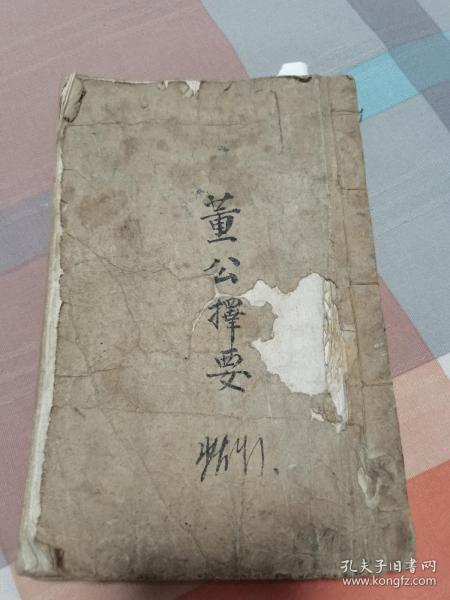 董公擇要
孔夫子旧书网
www.kongfz.com